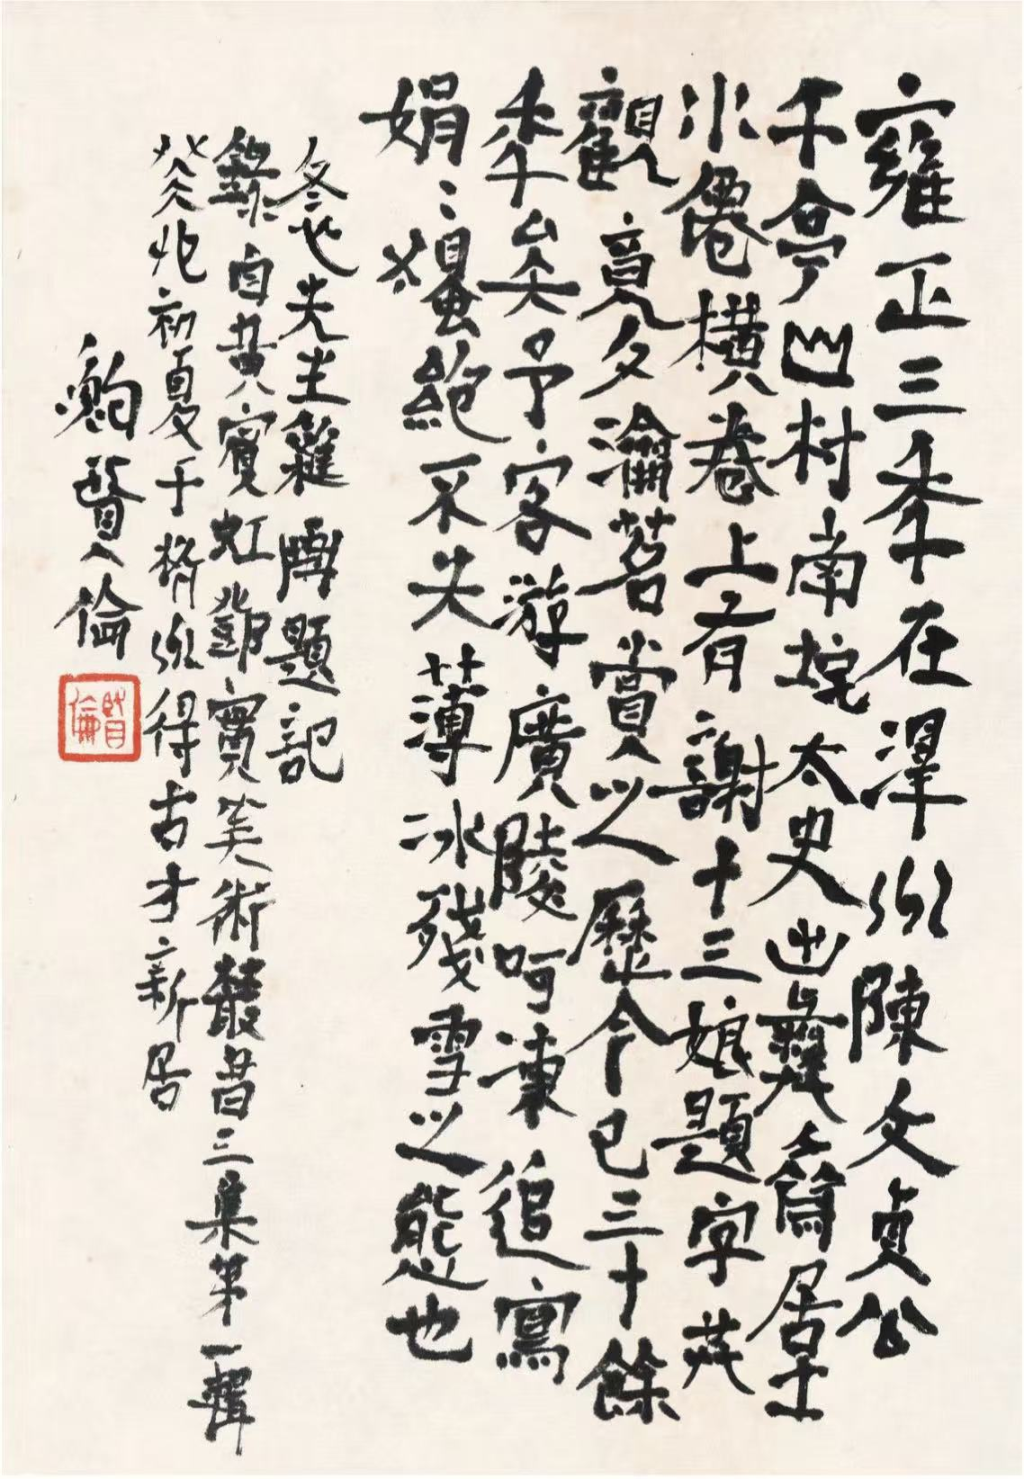 雍正三年在澤州陳文貞公
午亭山村南垞太史出彝齋居士
水僊橫卷上有謝十三娘題字共
觀竟夕瀹茗賞之歷今已三十餘
年矣予客游廣陵呵凍追寫
娟〻絕不失薄冰殘雪之態也
冬心先生雜畫題記
錄自黃賓虹鄧實美術叢書三集第一輯
癸卯初夏于揚州得古才新居
賢倫
賢倫